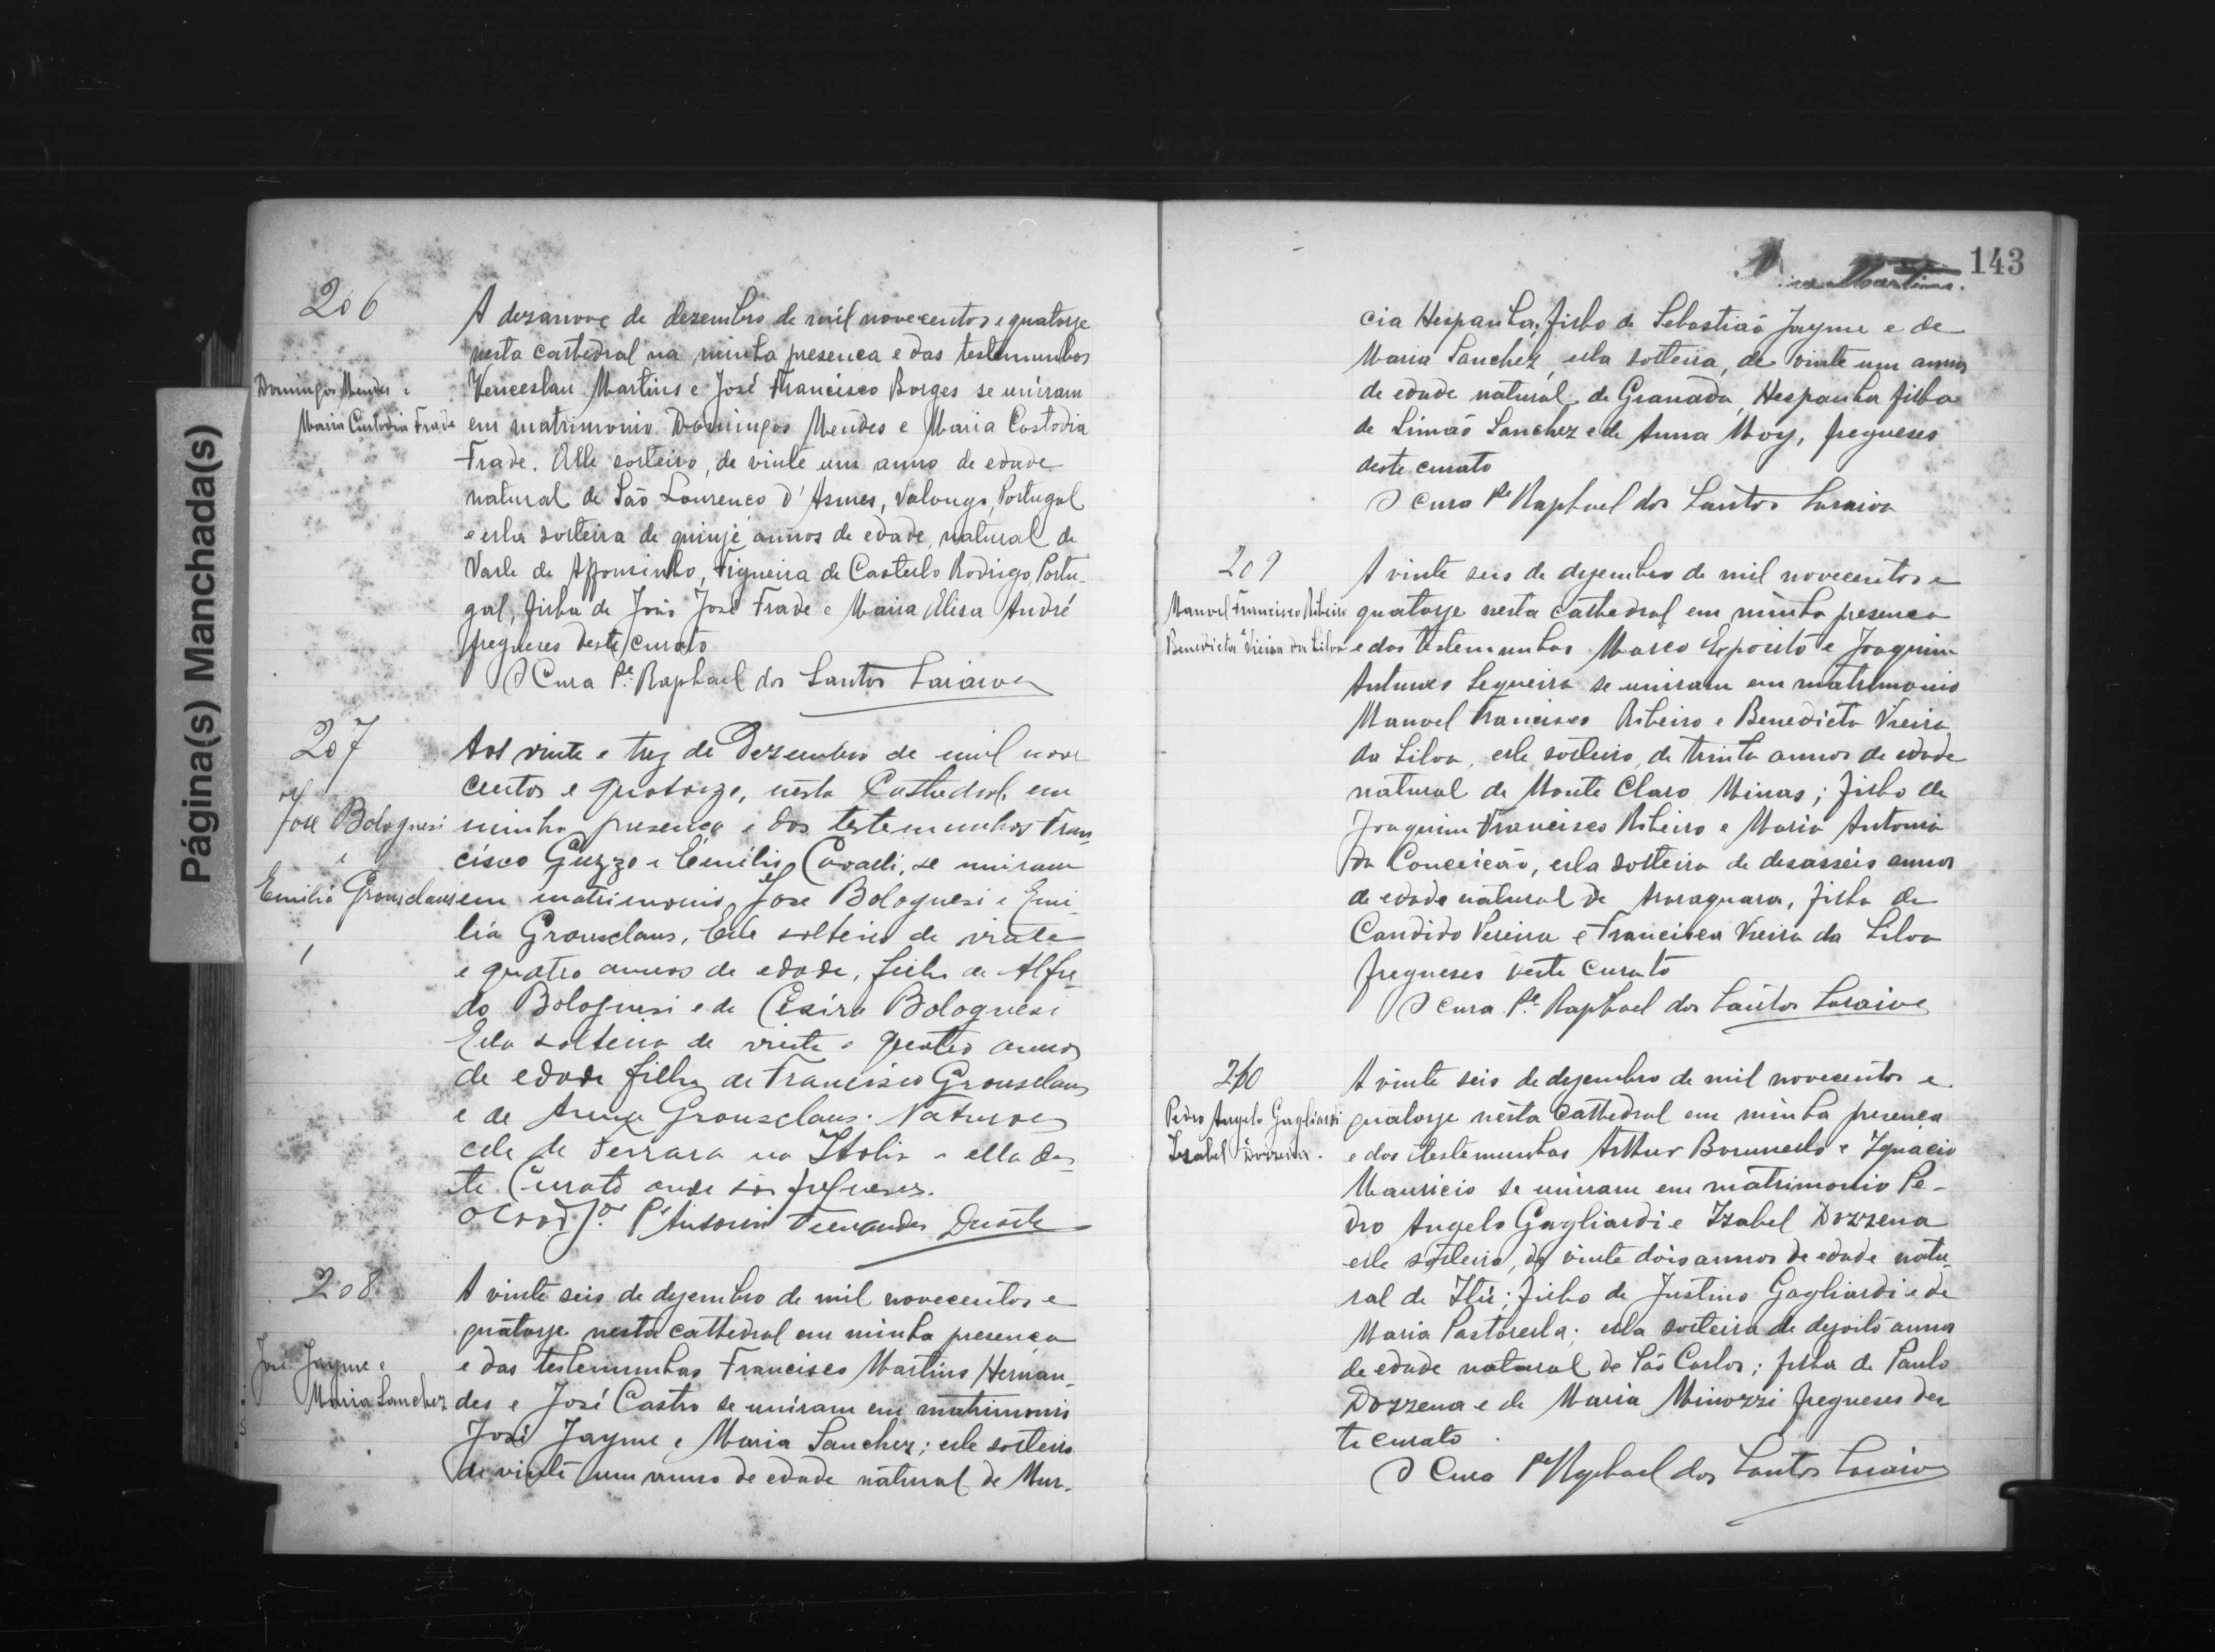 Página(s) Manchada(s)
206
Domingos Mendes e
Maria Custodia Frade
A dezanove de dezembro de mil novecentos e quatorje
nesta cathedral na minha presença e das testemunhas
Venceslau Martins e José Francisco Borges se uniram
em matrimonio Domingos Mendes e Maria Costodia
Frade. Elle solteiro, de vinte um anno de edade
natural de São Lourenco d'Asmes, Valongo, Portugal
e ella solteira de quinje annos de edade, natural de
Valle de Affonsinho, Figueira de Castello Rodrigo, Portu-
gal, filha de João José Frade e Maria Elisa André
freguezes deste curato
O Cura Pe. Raphael dos Santos Saraiva
207
José Bolognesi
e
Emilia Grousclaus
Aos vinte e trez de Dezembro de mil nove
centos e quatorze, nesta Cathedral, em
minha presença e das testemunhas Fran-
cisco Guzzo e Emilio Cavalli, se uniram
em matrimonio José Bolognesi e Emi-
lia Grousclaus, Elle solteiro de vinte
e quatro annos de edade, filho de Alfre-
do Bolognesi e de Cesira Bolognesi
Ella solteira de vinte e quatro annos
de edade filha de Francisco Grousclaus
e de Anna Grousclaus. Naturaes
elle de Ferrara na Italia e ella des-
te Curato onde são freguezes.
O Coadjor. Pe Antonio Fernandes Duarte
208
José Jayme e
Maria Sanchez
A vinte seis de dejembro de mil novecentos e
quatorje nesta cathedral em minha presença
e das testemunhas Francisco Martins Hernan-
des e José Castro se uniram em matrimonio
José Jayme e Maria Sanchez; elle solteiro
de vinte um anno de edade natural de Mur-
143
cia Hespanha, filho de Sebastião Jayme e de
Maria Sanchez, ella solteira, de vinte um annos
de edade natural de Granada, Hespanha filha
de Simão Sanchez e de Anna Moy, freguezes
deste curato
O Cura Pe Raphael dos Santos Saraiva
209
Manoel Francisco Ribeiro
Benedicta Vieira da Silva
A vinte seis de dejembro de mil novecentos e
quatorje nesta cathedral em minha presença
e das testemunhas Marco Esposito e Joaquim
Antunes Sequeira se uniram em matrimonio
Manoel Francisco Ribeiro e Benedicta Vieira
da Silva, elle solteiro, de trinta annos de edade
natural de Monte Claro Minas; filho de
Joaquim Francisco Ribeiro e Maria Antonia
da Conceicão, ella solteira de desasseis annos
de edade natural de Araraquara, filha de
Candido Vieira e Francisca Vieira da Silva
freguezes deste curato
O Cura Pe. Raphael dos Santos Saraiva
210
Pedro Angelo Gagliardi
Izabel Dozzena.
A vinte seis de dejembro de mil novecentos e
quatorje nesta cathedral em minha presença
e das testemunhas Arthur Borunello e Ignacio
Mauricio se uniram em matrimonio Pe-
dro Angelo Gagliardi e Izabel Dozzena
elle solteiro, de vinte dois annos de edade natu-
ral de Itú; filho de Justino Gagliardi e de
Maria Pastorella; ella solteira de dejoito annos
de edade natural de São Carlos; filha de Paulo
Dozzena e de Maria Minozzi freguezes des-
te curato
O Cura Pe Raphael dos Santos Saraiva